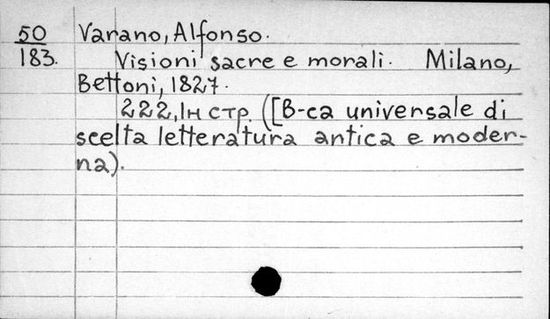 50 Varano, Alfonso.
183. Visioni sacre e morali. Milano,
Bettoni, 1827.
222, 1н стр. ([B-ca universale di
scelta letteratura antica e moder-
na).